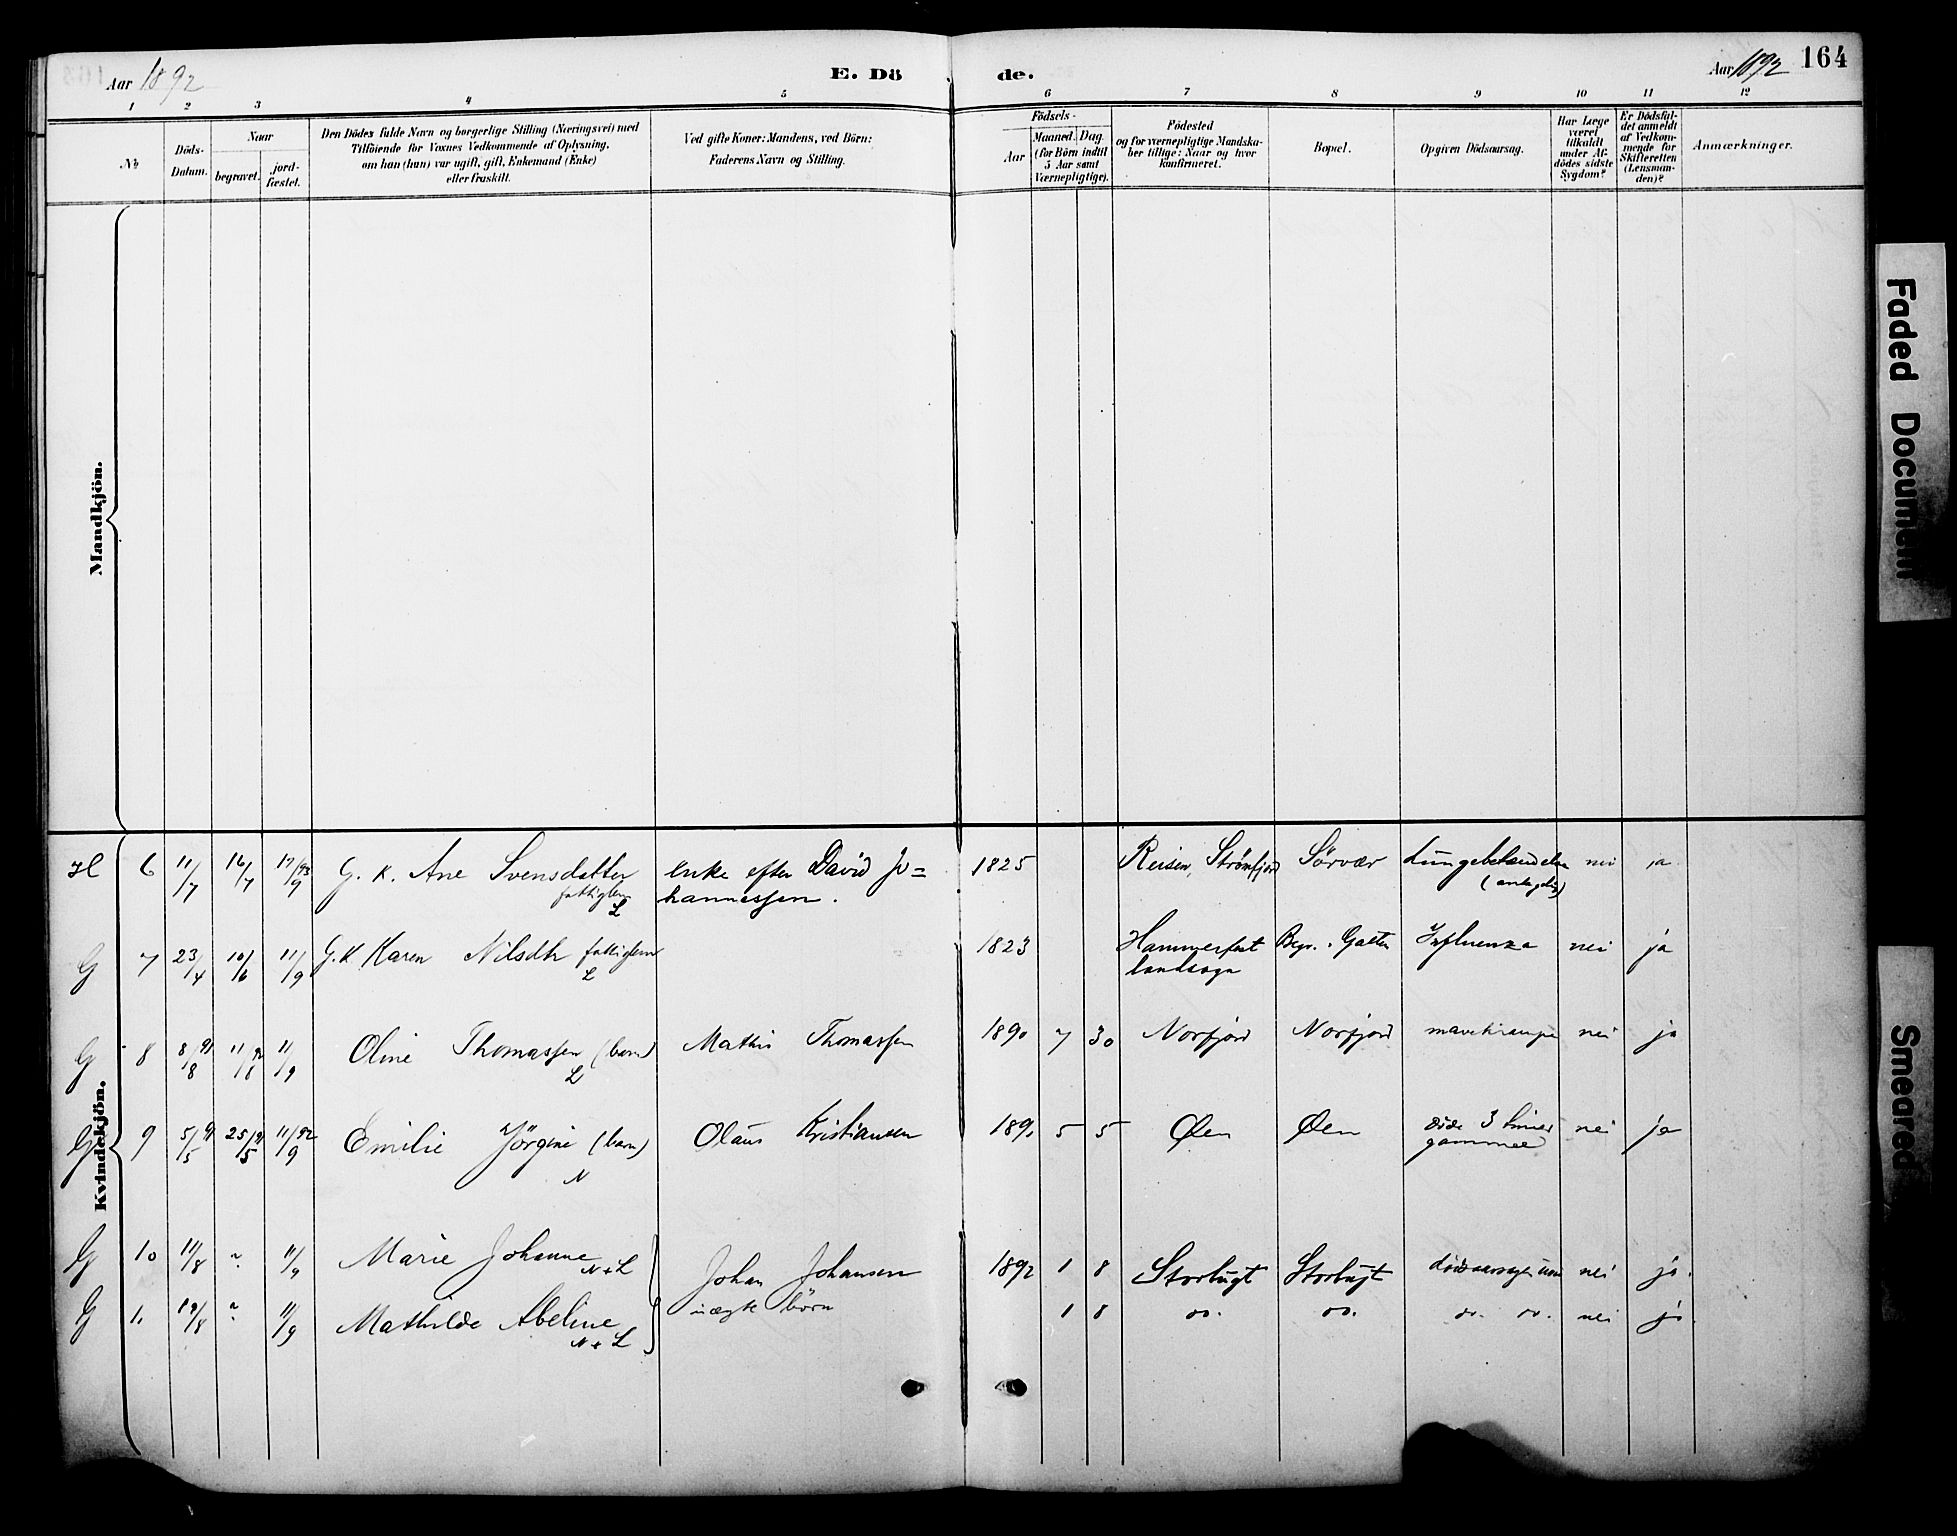 Aar 1892
E. Dö
de.
Aar 1892
164
1 2 3 4 5 6 7 8 9 10 11 12
№
Döds-
Datum.
Naar
begravet.
jord-
fæstet.
Den Dödes fulde Navn og borgerlige Stilling (Næringsvei) med
Tilföiende for Voxnes Vedkommende af Oplysning,
om han (hun) var ugift, gift, Enkemand (Enke)
eller fraskilt.
Ved gifte Koner: Mandens, ved Börn:
Faderens Navn og Stilling.
Födsels-
Aar
Maaned. Dag.
(for Börn indtil
5 Aar samt
Værnepligtige).
Födested
og for værnepligtige Mandska-
ber tillige: Naar og hvor
konfirmeret.
Bopæl.
Opgiven Dödsaarsag.
Har Læge
været
tilkaldt
under Af-
dödes sidste
Sygdom?
Er Dödsfal-
det anmeldt
af Vedkom-
mende for
Skifteretten
(Lensman-
den)?
Anmærkninger.
Mandkjön.
Kvindekjön.
H 6 11/7 16/7 17/9 93 G. K. Ane Svensdatter enke efter David Jo= 1825 Reisen, Strömfjord Sörvær nei ja
fattiglem L hannessen.
G 7 23/4 10/6 11/9 G. K Karen Nilsdtr fattiglem 1823 Hammerfest Galten Influenza nei ja
L landsogn
G 8 8/8 91 11/9 Oline Thomassen (barn) Mathis Thomassen 1890 7 30 Norfjord Norfjord mavekrampe nei ja
L
G 9 5/5 91 25/5 91 11/9 92 Emilie Jörgine (barn) Olaus Kristiansen 1891 5 5 Øen Øen döde 3 timer nei ja
N gammel
G 10 11/8 " 11/9 Marie Johanne N+L Johan Johansen 1892 1 8 Storbugt Storbugt nei ja.
G 11 19/8 " 11/9 Mathilde Abeline N+L uægte börn 1 8 do. do. do. do. nei ja.
Faded Document
Smeared